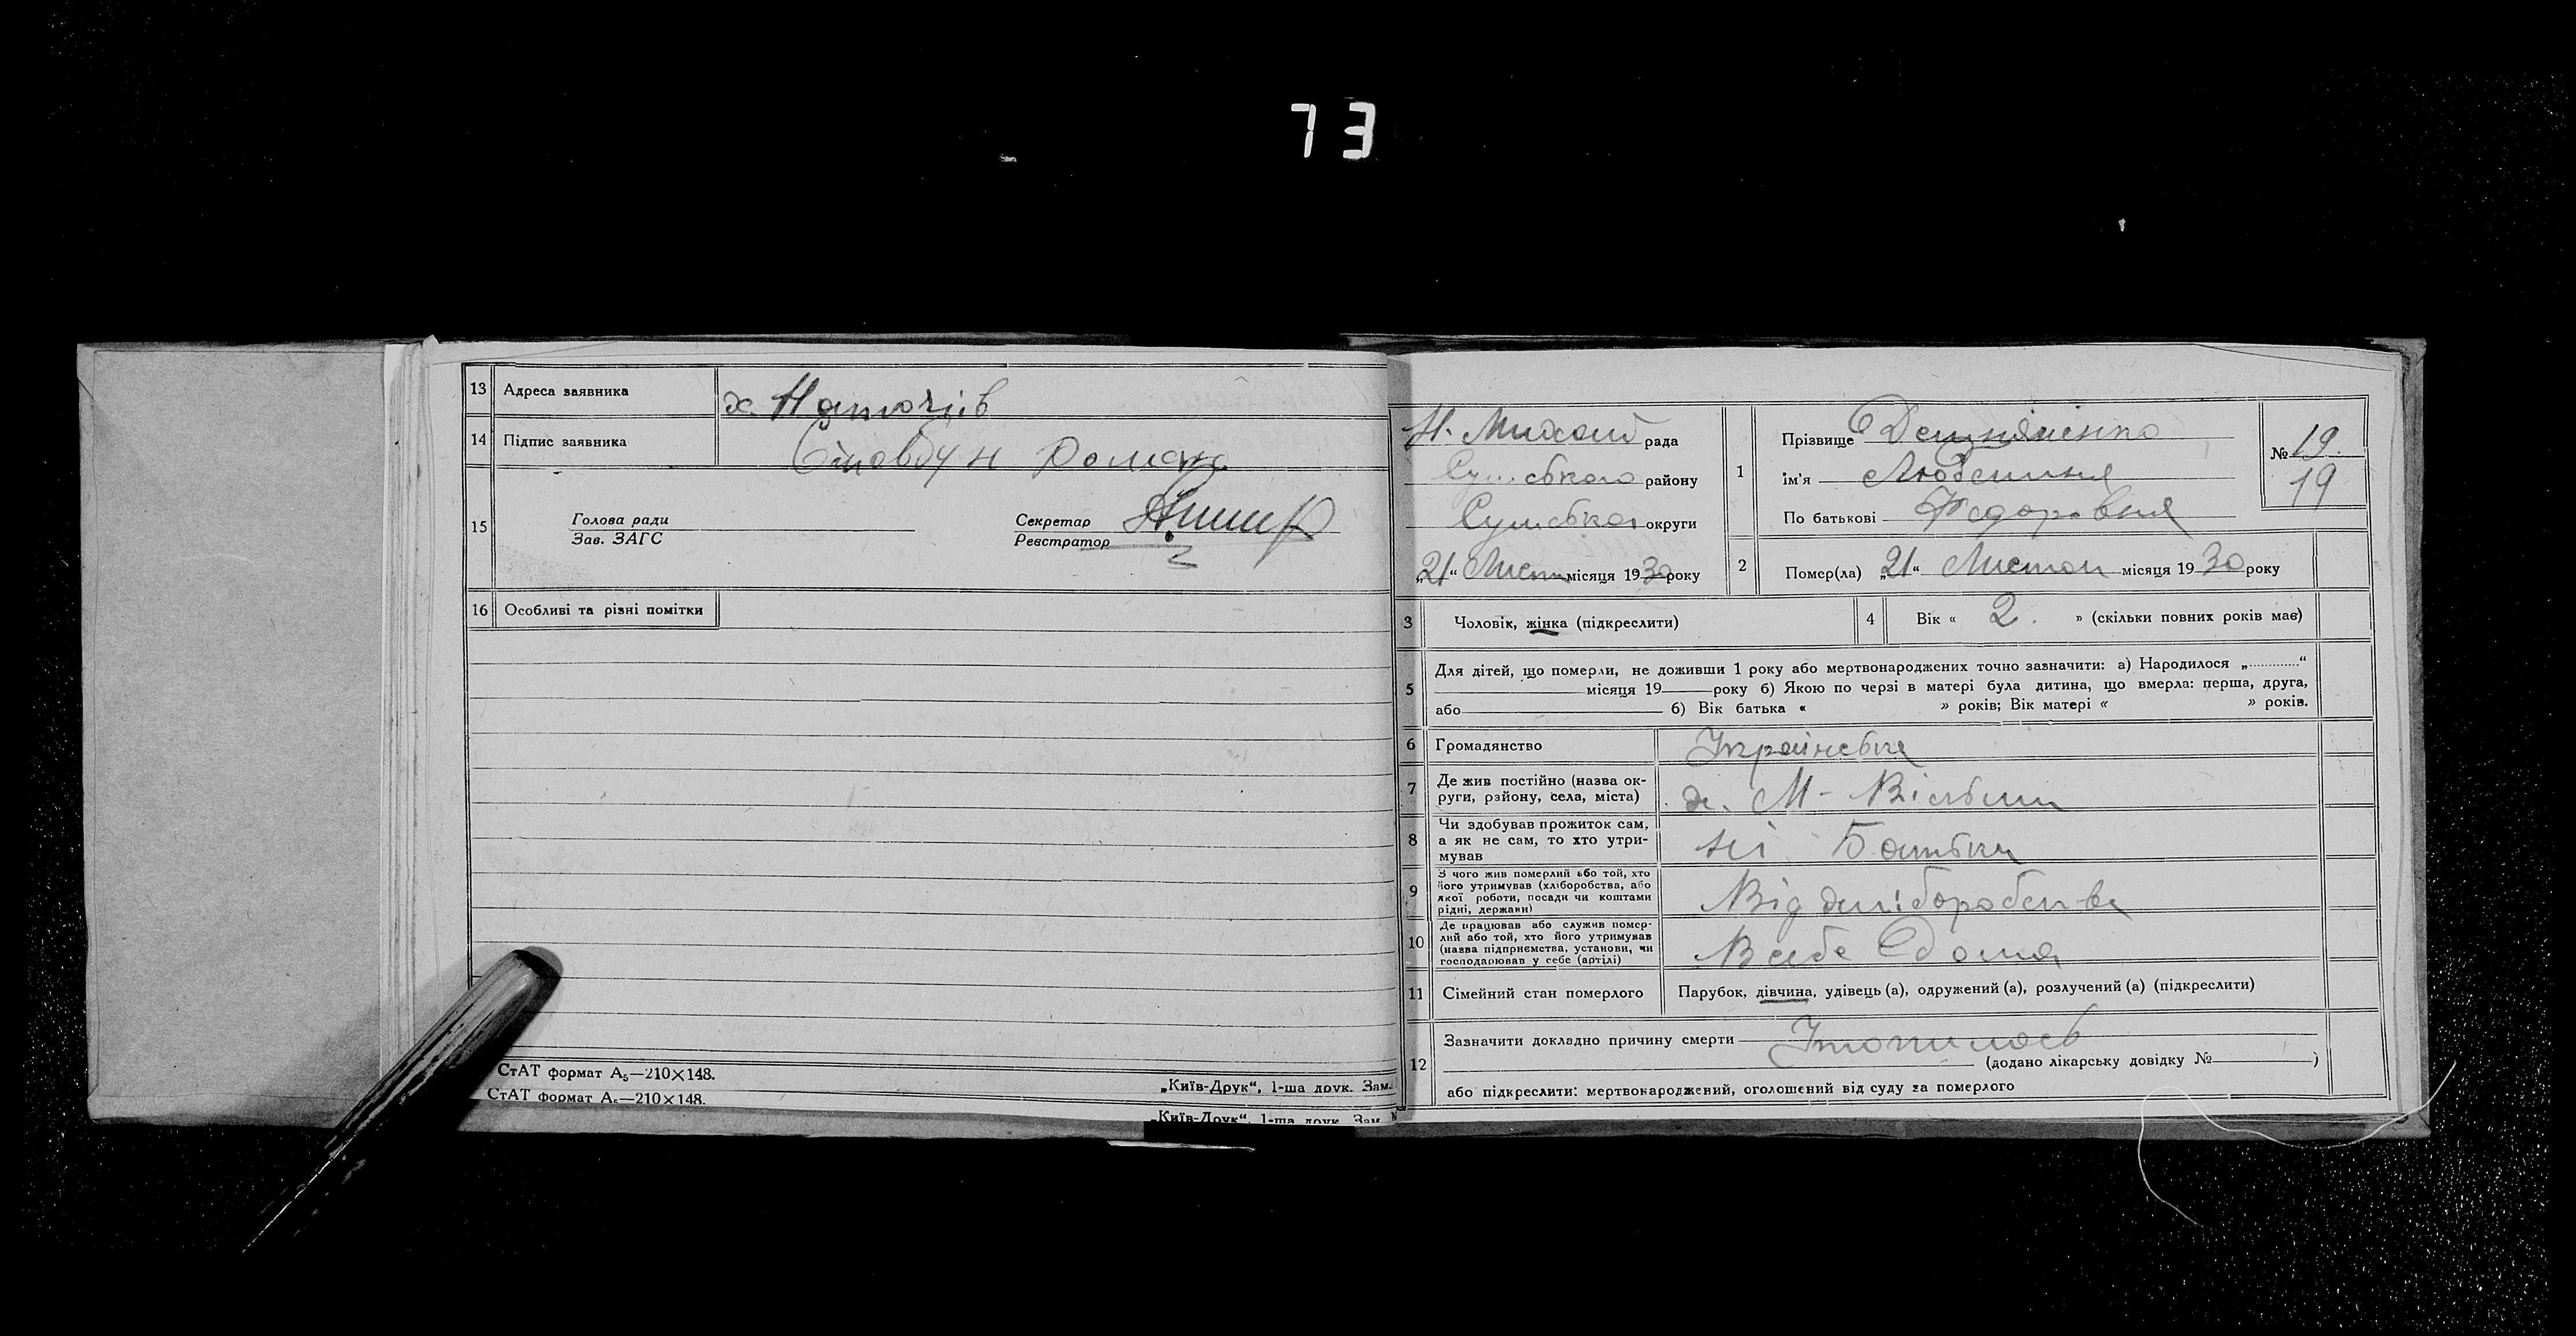 73
13 Адреса заявника
х.
14 Підпис заявника
Стовбун Романа
15
Голова ради
Зав. ЗАГС
Секретар
Реєстратор
16 Особливі та різні помітки
СтАТ формат А₅—210×148.
„Київ-Друк“, 1-ша друк. Зам.
СтАТ формат А₅—210×148.
„Київ-Друк“, 1-ша друк. Зам.
Н. рада
Сумського району
Сумської округи
„21“ Листоп місяця 1930 року
1
Прізвище
ім'я
По батькові Федоровня
№ 19.
19
2
Помер(ла) „21“ Листоп місяця 1930 року
3 Чоловік, жінка (підкреслити)
4 Вік « 2. » (скільки повних років має)
5
Для дітей, що померли, не доживши 1 року або мертвонароджених точно зазначити: а) Народилося „.............“
місяця 19 року б) Якою по черзі в матері була дитина, що вмерла: перша, друга,
або б) Вік батька « » років; Вік матері « » років.
6 Громадянство
Українська
7 Де жив постійно (назва ок-
руги, району, села, міста)
8 Чи здобував прожиток сам,
а як не сам, то хто утри-
мував
ні Батьки
9 З чого жив померлий або той, хто
його утримував (хліборобства, або
якої роботи, посади чи коштами
рідні, держави)
Від хліборобства
10 Де працював або служив помер-
лий або той, хто його утримував
(назва підприємства, установи, чи
господарював у себе (артілі)
В себе дома
11 Сімейний стан померлого
Парубок, дівчина, удівець (а), одружений (а), розлучений (а) (підкреслити)
12
Зазначити докладно причину смерти Утопилось
(додано лікарську довідку № )
або підкреслити: мертвонароджений, оголошений від суду за померлого